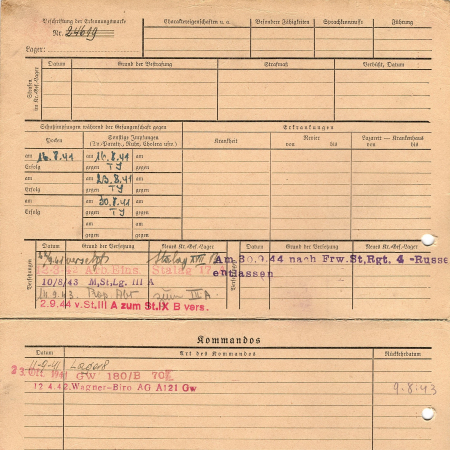 Beschriftung der Erkennungsmarke
Nr. 24619
Lager:
Charaktereigenschaften u. a.
Besondere Fähigkeiten
Sprachkenntnisse
Führung
Strafen im Kr.-Gef.-Lager
Datum
Grund der Bestrafung
Strafmaß
Verbüßt, Datum
Schutzimpfungen während der Gefangenschaft gegen
Erkrankungen
Pocken
Sonstige Impfungen
(Ty.-Paraty., Ruhr, Cholera usw.)
Krankheit
Revier
von bis
Lazarett — Krankenhaus
von bis
am 16.8.41
am 16.8.41
am
Erfolg
gegen TY
gegen
am
am 23.8.41
am
Erfolg
gegen TY
gegen
am
am 30.8.41
am
Erfolg
gegen TY
gegen
am
am
gegen
gegen
Versetzungen
Datum
Grund der Versetzung
Neues Kr.-Gef.-Lager
Versetzungen
Datum
Grund der Versetzung
Neues Kr.-Gef.-Lager
versetzt Stalag XVII
Arb. Eins. Stalag 17
10/8/43 M,St,Lg. III A
.9.43. zum III A.
2.9.44 v.St,III A zum St.IX B vers.
Am 30.9.44 nach Frw.St,Rgt. 4 -Russe
entlassen
Kommandos
Datum
Art des Kommandos
Rückkehrdatum
11-9-41 Lager
1941 GW 180/B
12 4.42.Wagner-Biro AG A121 Gw
9-8-43